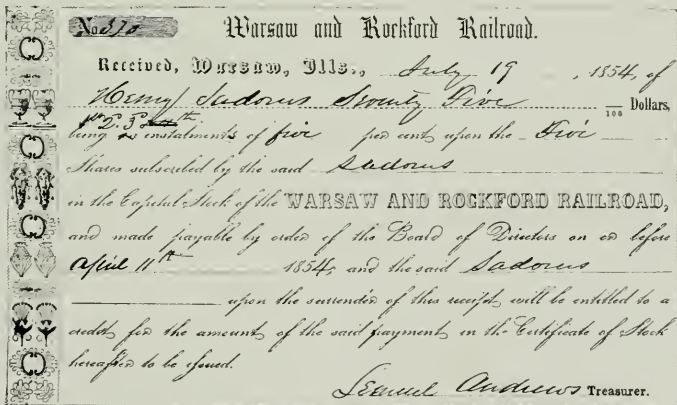 No 370 Warsaw and Rockford Railroad.
Received, Warsaw, Ills., July 19, 1854, of
Henry Sadorus Seventy Five /100 Dollars,
1st 2. 3.
being instalments of five per cent upon the Five
Shares subscribed by the said Sadorus
in the Capital Stock of the WARSAW AND ROCKFORD RAILROAD,
and made payable by order of the Board of Directors on or before
April 11th 1854, and the said Sadorus
upon the surrender of this receipt, will be entitled to a
credit for the amount of the said payment, in the Certificate of Stock
hereafter to be issued.
Lemuel Andrews Treasurer.